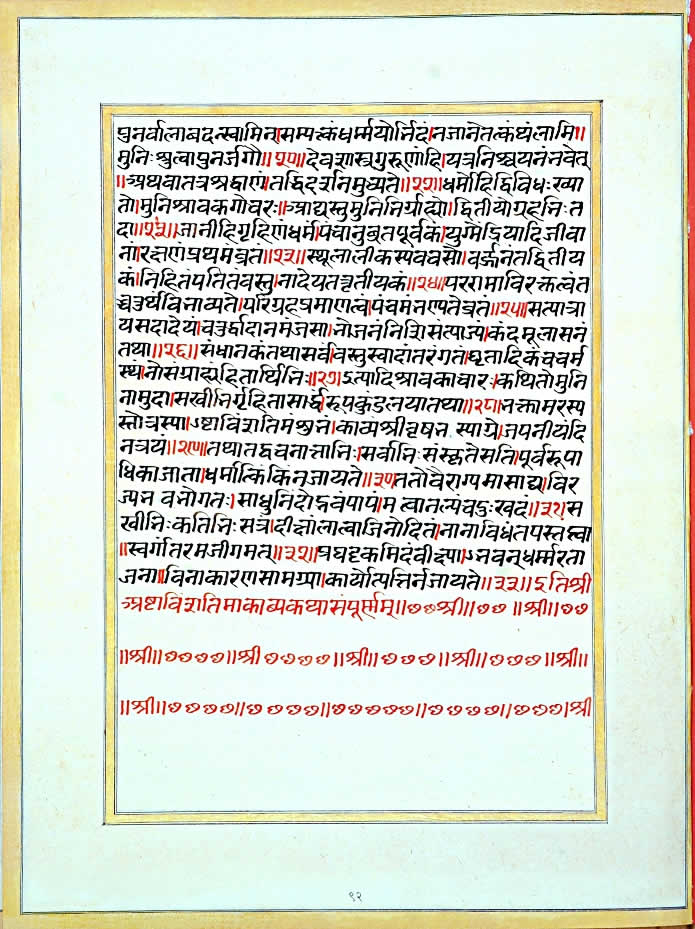 पुनर्बालाबदत्स्वामिन्।सम्यत्क्कधर्म्मयोर्निदं।नजानेतत्कथंलामि॥
मुनिःश्रुत्वापुनर्जगौ॥२०॥देवशास्त्रगुरूणांदि।यत्रनिश्चयनंनवेत्
॥अथवातत्रश्रद्वाणं।तद्विदर्शनमुच्यते॥२१॥धर्मोदिद्विविधःख्या
तो।मुनिश्रावकगोचरः॥आद्यस्तुमुनिनिर्ग्राह्यो।द्वितीयोगृहनिःत
दा॥२२॥जानीदिगृदिणंधर्म।पंचानुव्रतपूर्वकं।युग्मेंद्रियादिजीवा
नां।रक्षणंप्रथमंव्रतं॥२३॥स्थूलालीकस्यवचसो।वर्ज्जनंतद्दितीय
कं।निहितंपतितंवस्तु।नादेयंतत्तृतीयकं॥२४॥पररामाविरक्तत्वंत
च्चतुर्थविनाव्यते।परिग्रहप्रमाणत्वं।पंचमंनण्यतेव्रतं॥२५॥सत्पात्रा
यसदादेयं।चतुर्द्धादानमंजसा।नोजनंनिशिसंत्याज्यं।कंदमूलासनं
तथा॥२६॥संधानकंतथासर्वं।वस्तुस्वादांतरंगतं।घृतादिकंचचर्म
स्थं।नोसंग्राह्यंहितार्थिनिः॥२७॥इत्यादिश्रावकाचारः।कथितोमुनि
नामुदा।सखीनिर्गृहितासार्द्धं।रूपकुंडलयातथा॥२८॥नक्तामरस्य
स्तोत्रस्या।ष्टाविंशतिमंश्रुनं।काव्यंश्रीवृषन स्याग्रे।जपनीयंदि
नत्रयं॥२९॥तथातद्वचनान्नानिः।सर्वानिःसंस्कृतेसति।पूर्वरूपा
धिकाजाता।धर्मात्किंकिंनजायते॥३०॥ततोवैराग्यमासाद्य।विर
ज्यन वनोगतः।साधुनिंदोद्भवंपापं।म त्वानल्पंचदुःखदं॥३१॥स
खीनिःकतिनिःसत्रं।दीक्षांलात्वाजिनोदितं।नानाविधंतपस्तप्त्वा
॥स्वर्गांतरमजीगमत्॥३२॥प्रघट्टकमिदंवीक्ष्या।नवन्धर्म्मरता
जना॥विनाकारणसामग्र्या।कार्योत्पत्तिर्नजायते॥३३॥इतिश्री
अष्टाविंशतिमाकाव्यकथासंपूर्णम्॥७७श्री॥७७॥श्री॥७७
॥श्री॥७७७७॥श्री७७७७॥श्री॥७७७॥श्री॥७७७॥श्री॥
॥श्री॥७७७७॥७७७७॥७७७७७॥७७७७॥७७७।श्री
९२